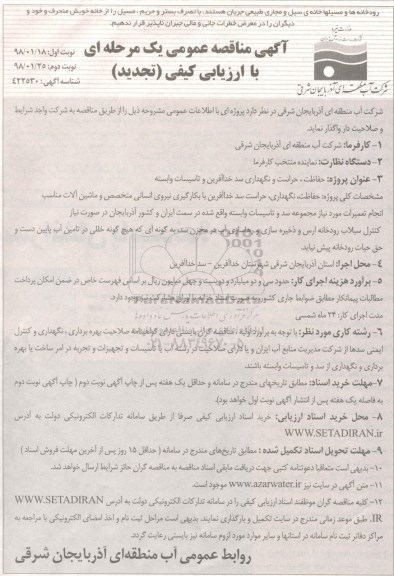 رودخانه ها و مسیلها خانه ی سیل و مجاری طبیعی جریان هستند، با تصرف بستر و حریم، مسیل را از خانه خویش منحرف و خود و
دیگران را در معرض خطرات جانی و مالی جبران ناپذیر قرار ندهیم.
آگهی مناقصه عمومی یک مرحله ای
با ارزیابی کیفی (تجدید)
نوبت اول: ۹۸/۰۱/۱۸
نوبت دوم: ۹۸/۰۱/۲۵
شناسه آگهی: ۴۲۲۵۳۰
شرکت آب منطقه ای آذربایجان شرقی
شرکت آب منطقه ای آذربایجان شرقی در نظر دارد پروژه ای با اطلاعات عمومی مشروحه ذیل را از طریق مناقصه به شرکت واجد شرایط
و صلاحیت دار واگذار نماید.
۱- کارفرما: شرکت آب منطقه ای آذربایجان شرقی
۲- دستگاه نظارت: نماینده منتخب کارفرما
۳- عنوان پروژه: حفاظت، حراست و نگهداری سد خداآفرین و تاسیسات وابسته
مشخصات کلی پروژه: حفاظت، نگهداری، حراست سد خداآفرین با بکارگیری نیروی انسانی متخصص و ماشین آلات مناسب
انجام تعمیرات مورد نیاز مجموعه سد و تاسیسات وابسته واقع شده در سمت ایران و کشور آذربایجان در صورت نیاز
کنترل سیلاب رودخانه ارس و ذخیره سازی و رهاسازی آب در مخزن سد به گونه ای که هیچ گونه خللی در تامین آب پایین دست و
حق حیات رودخانه پیش نیاید.
۴- محل اجرا: استان آذربایجان شرقی شهرستان خداآفرین - سد خداآفرین
۵- برآورد هزینه اجرای کار: حدود سی و دو میلیارد و دویست و چهل میلیون ریال بر اساس فهرست خاص در ضمن امکان پرداخت
مطالبات پیمانکار مطابق ضوابط جاری کشور به صورت اسناد خزانه یا اوراق مشارکت نیز وجود دارد.
مدت اجرای کار: ۲۴ ماه شمسی
۶- رشته کاری مورد نظر: با توجه به برآورد اولیه، مناقصه گران بایستی دارای گواهینامه صلاحیت بهره برداری، نگهداری و کنترل
ایمنی سدها از شرکت مدیریت منابع آب ایران و یا دارای صلاحیت در رشته آب یا تاسیسات و تجهیزات و تجربه در امر ساخت یا بهره
برداری و نگهداری از سد و تاسیسات وابسته باشند.
۷- مهلت خرید اسناد: مطابق تاریخهای مندرج در سامانه و حداقل یک هفته پس از چاپ آگهی نوبت دوم ( چاپ آگهی نوبت دوم
به فاصله یک هفته پس از انتشار آگهی نوبت اول خواهد بود).
۸- محل خرید اسناد ارزیابی: خرید اسناد ارزیابی کیفی صرفا از طریق سامانه تدارکات الکترونیکی دولت به آدرس
WWW.SETADIRAN.ir
۹- مهلت تحویل اسناد تکمیل شده: مطابق تاریخ‌های مندرج در سامانه ( حداقل ۱۵ روز پس از آخرین مهلت فروش اسناد )
۱۰- بدیهی است متعاقبا دعوتنامه کتبی جهت دریافت مابقی اسناد مناقصه به مناقصه گران حائز شرایط ارسال خواهد شد.
۱۱- متن آگهی در سایت نیز www.azarwater.ir موجود است.
۱۲- کلیه مناقصه گران موظفند اسناد ارزیابی کیفی را در سامانه تدارکات الکترونیکی دولت به آدرس WWW.SETADIRAN
.IR طبق موعد زمانی مندرج در سایت تکمیل و بارگذاری نمایند. بدیهی است مراحل ثبت نام و اخذ امضای الکترونیکی با مراجعه به
مراکز دفاتر ثبت نام سامانه در استانها و سایر موارد مورد لزوم سامانه نیز بایستی رعایت گردد.
روابط عمومی آب منطقه‌ای آذربایجان شرقی